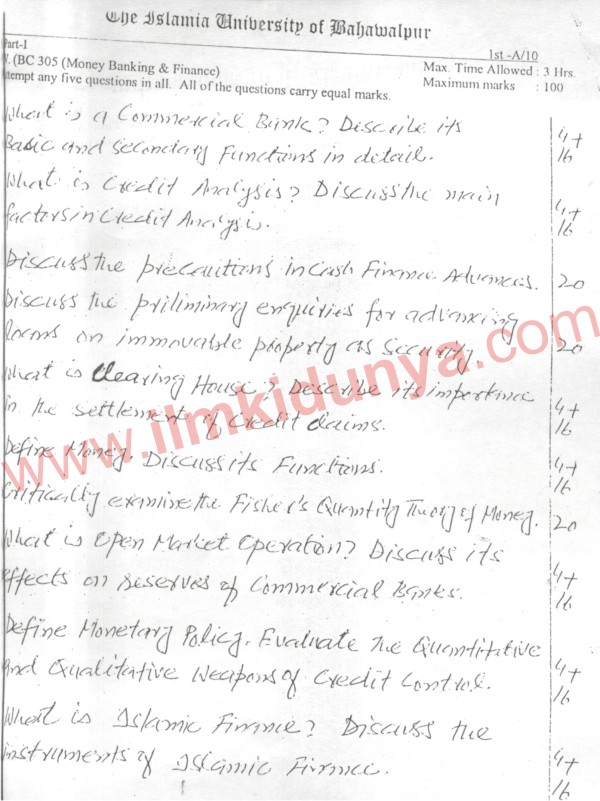 The Islamia University of Bahawalpur
Part-I
1st -A/10
(BC 305 (Money Banking & Finance)
Max. Time Allowed : 3 Hrs.
tempt any five questions in all. All of the questions carry equal marks.
Maximum marks : 100
What is a Commercial Bank? Describe its 4+
Basic and secondary Functions in detail. 16
What is Credit Analysis? Discuss the main 4+
factors in Credit Analysis. 16
Discuss the precautions in Cash Finance Advances. 20
Discuss the priliminary enquiries for advancing
loans on immovable property as security 20
What is Clearing House? Describe its importance
in the settlement of Credit claims. 4+
16
Define Money. Discuss its Functions. 4+
16
Critically examine the Fisher's Quantity Theory of Money. 20
What is Open Market Operation? Discuss its
effects on reserves of Commercial Banks. 4+
16
Define Monetary Policy. Evaluate the Quantitative
and Qualitative Weapons of Credit Control. 4+
16
What is Islamic Finance? Discuss the
instruments of Islamic Finance. 4+
16
www.ilmkidunya.com